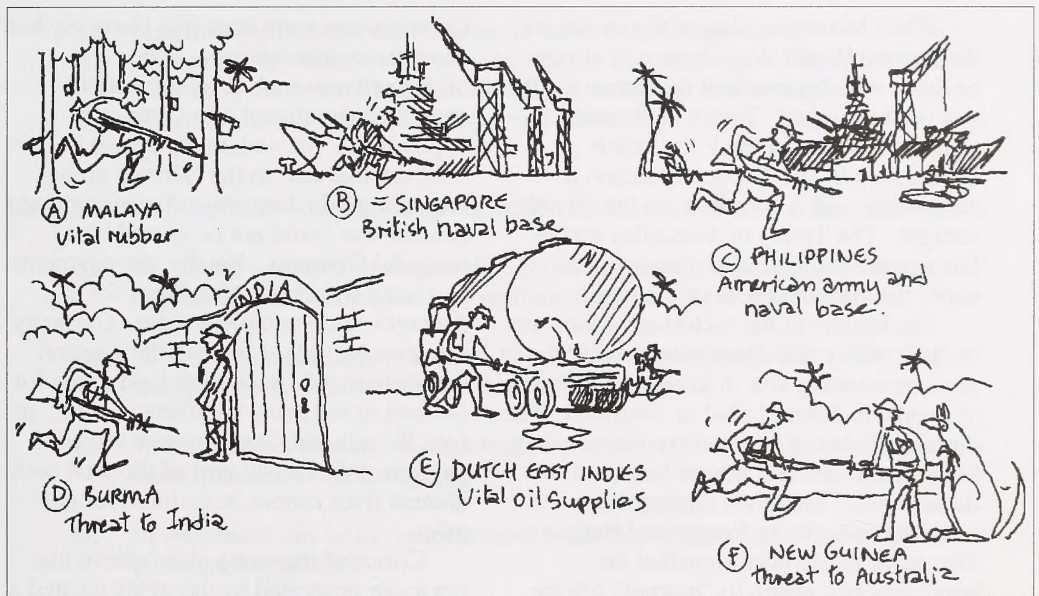 Ⓐ MALAYA
Vital rubber
Ⓑ = SINGAPORE
British naval base
Ⓒ PHILIPPINES
American army and
naval base
INDIA
Ⓓ BURMA
Threat to India
Ⓔ DUTCH EAST INDIES
Vital oil Supplies
Ⓕ NEW GUINEA
Threat to Australia